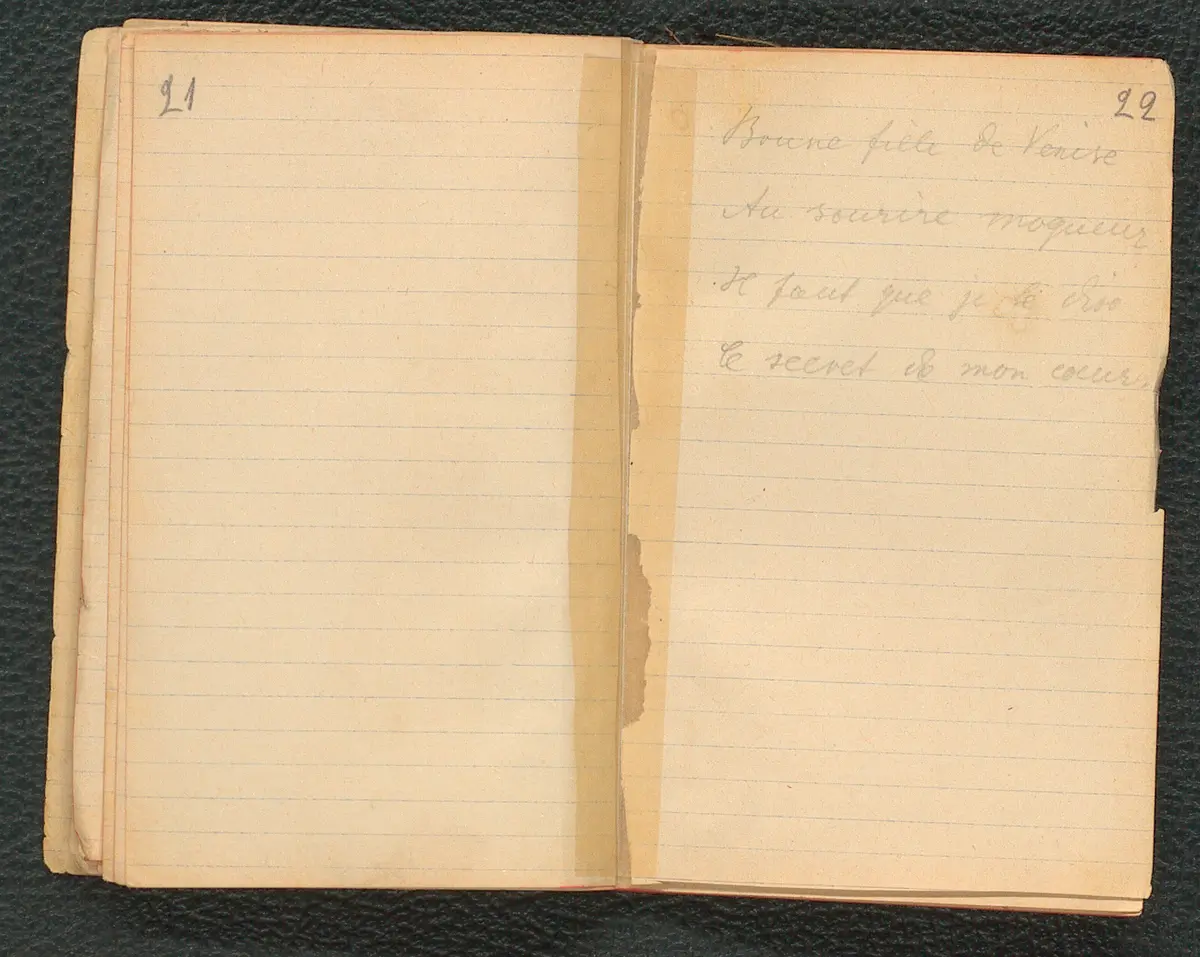 21
22
Bonne fille de Venise
Au sourire moqueur
Il faut que je te dise
Le secret de mon cœur.